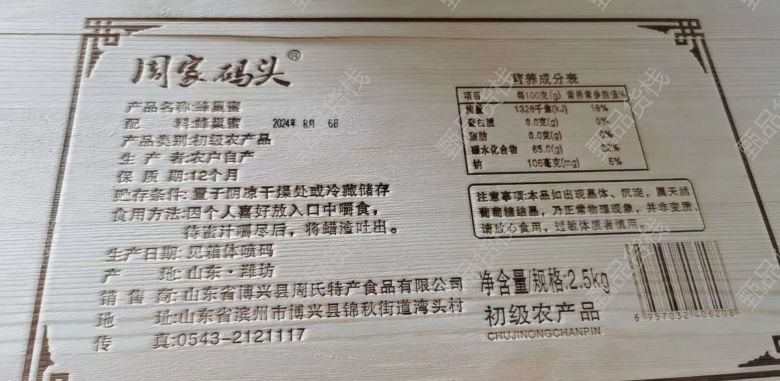 周家码头®
产品名称:蜂巢蜜
配 料:蜂巢蜜
2024年 8月 6日
产品类别:初级农产品
生 产 者:农户自产
保 质 期:12个月
贮存条件:置于阴凉干燥处或冷藏储存
食用方法:因个人喜好放入口中嚼食,
待蜜汁嚼尽后,将蜡渣吐出。
生产日期:见箱体喷码
产 地:山东·潍坊
销 售 商:山东省博兴县周氏特产食品有限公司
地 址:山东省滨州市博兴县锦秋街道湾头村
传 真:0543-2121117
营养成分表
项目 每100克(g) 营养素参考值%
能量 1326千焦(kJ) 16%
蛋白质 0.0克(g) 0%
脂肪 0.0克(g) 0%
碳水化合物 65.0(g) 22%
钠 106毫克(mg) 5%
注意事项:本品如出现晶体、沉淀,属天然
葡萄糖结晶,乃正常物理现象,并非变质,
请放心食用,过敏体质者慎用。
净含量/规格:2.5kg
初级农产品
CHUJINONGCHANPIN
6 957032 406208
甄品货栈